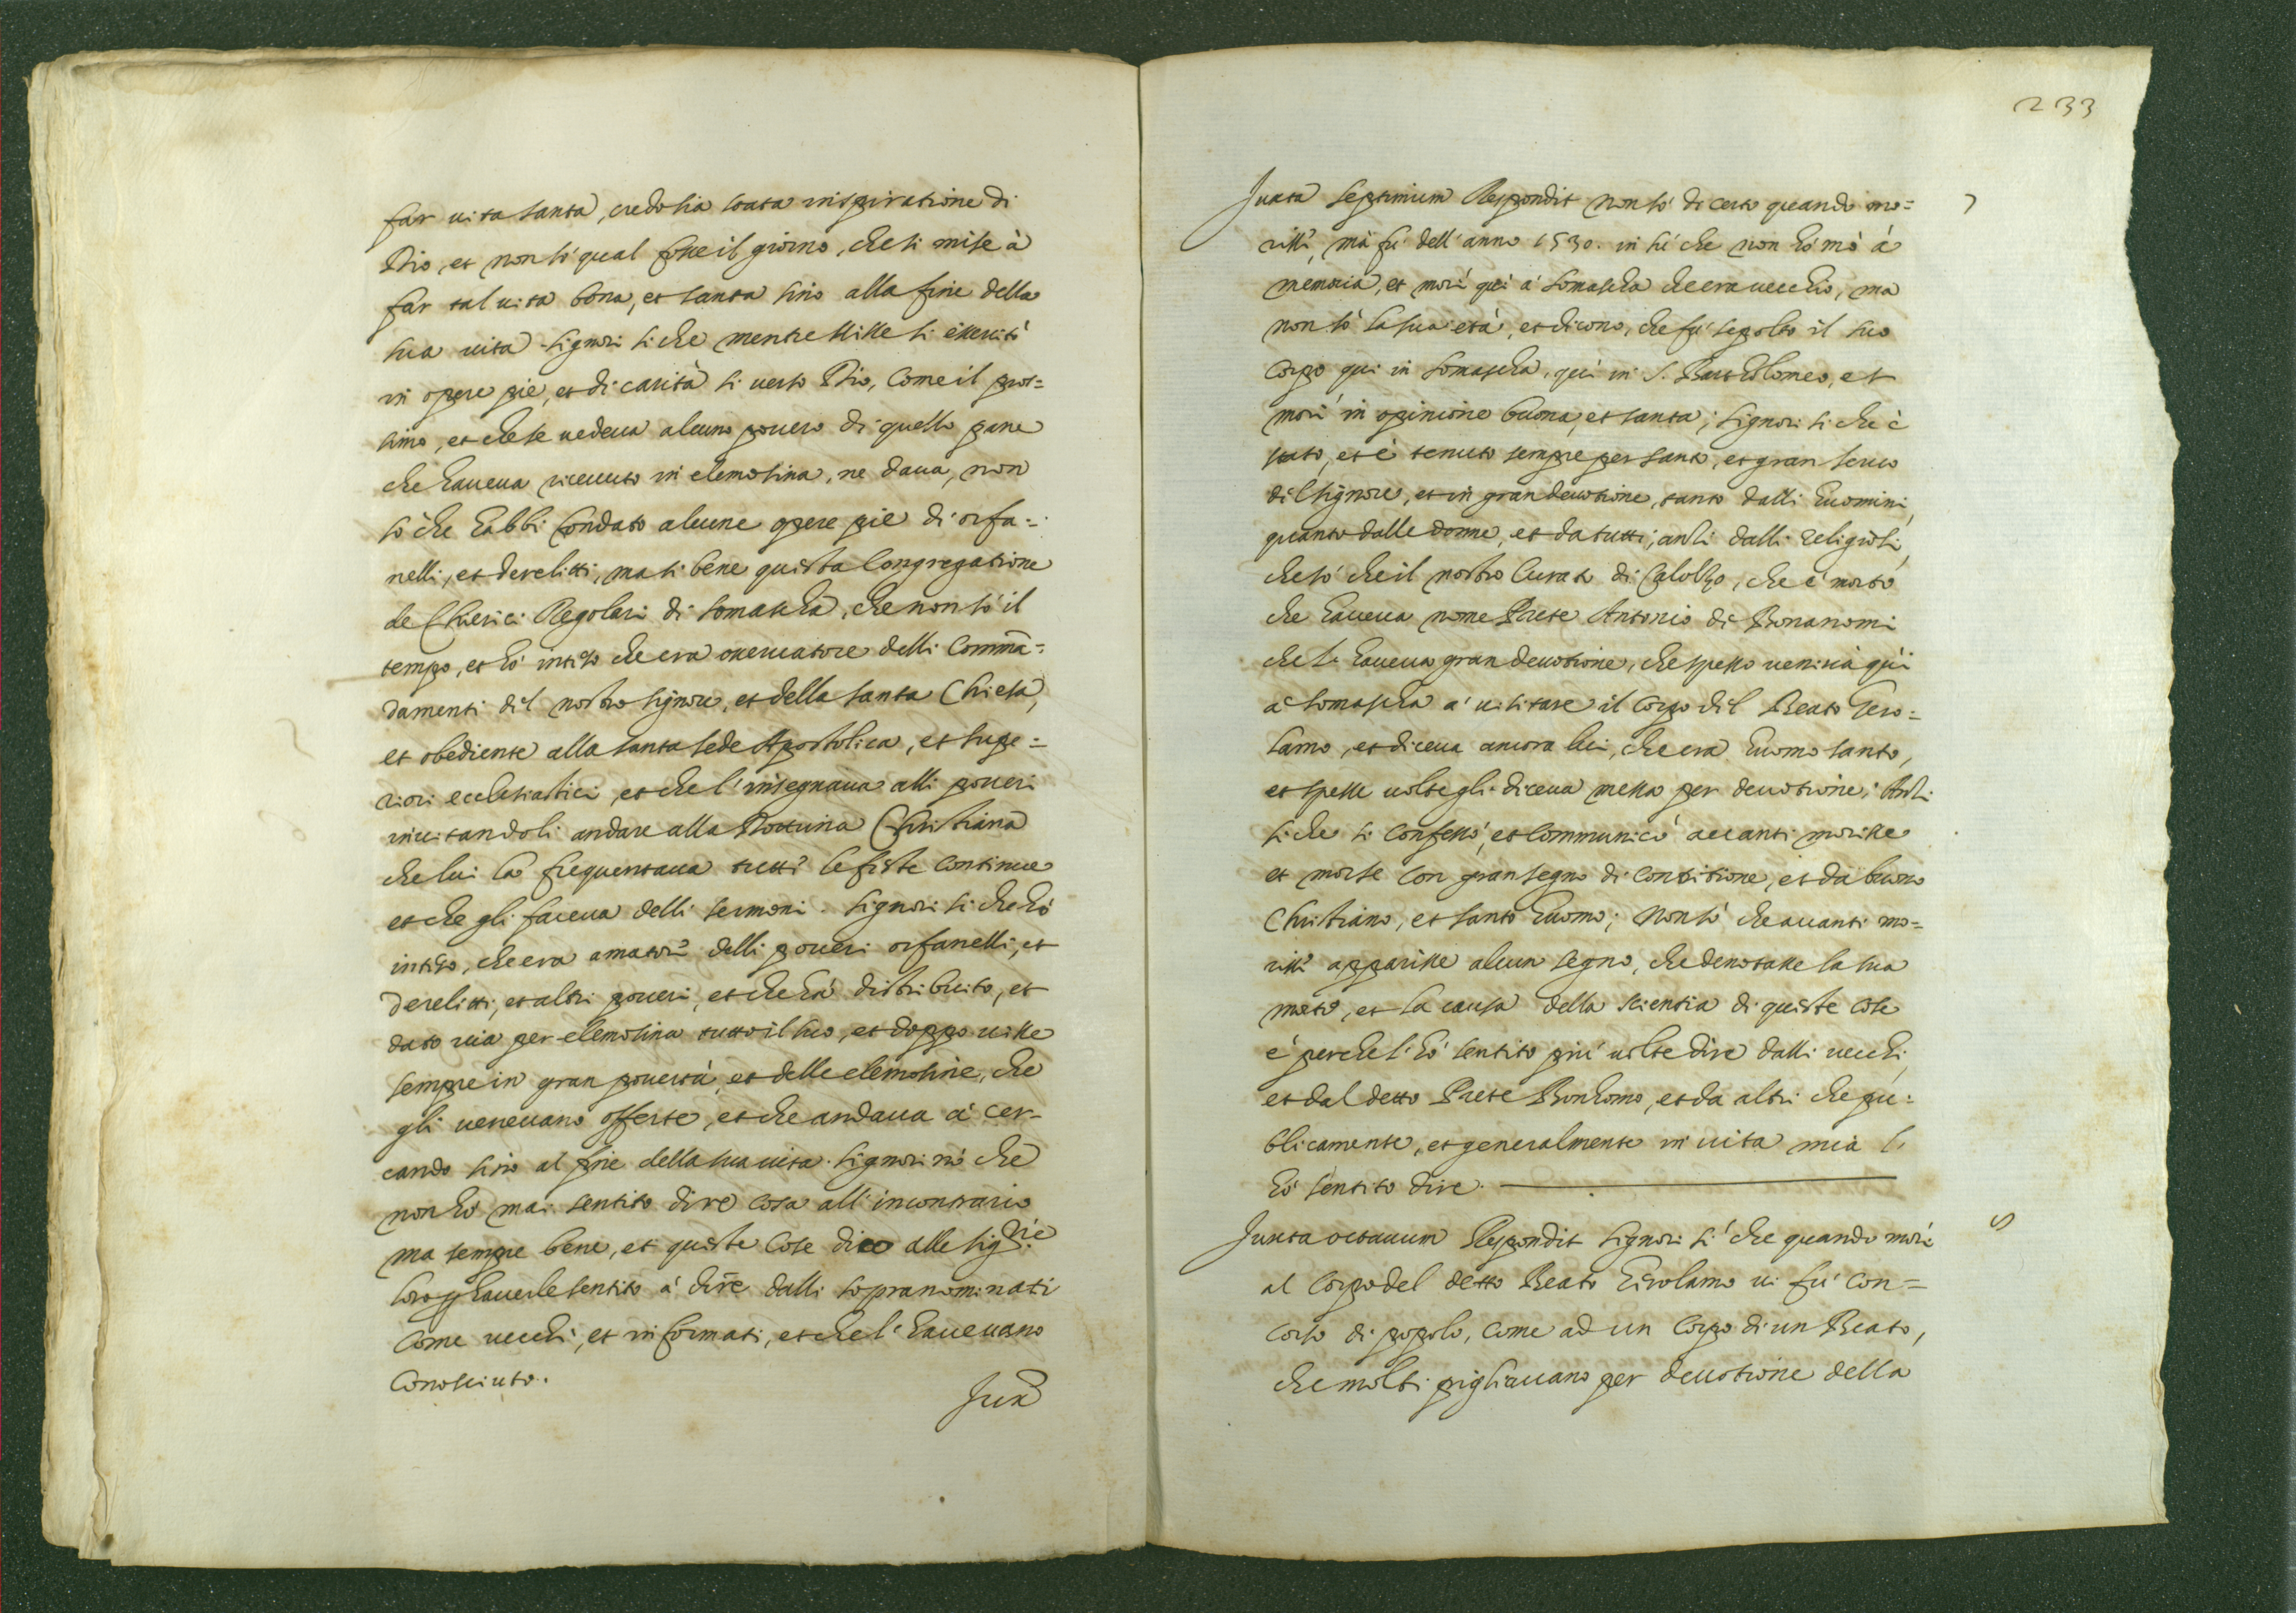 far uita santa, credo sia stata inspiratione di
Dio, et non só qual fosse il giorno, che si mise à
far tal uita bona, et santa sino alla fine della
sua uita. Signori si che mentre uisse si essercitò
in opere pie, et di carità si uerso Dio, come il pros=
simo, et che se uedeua alcuno pouero di quello pane
che haueua riceuuto in elemosina, ne daua, non
sò che habbi fondato alcune opere pie di orfa=
nelli, et derelitti, ma si bene questa Congregatione
de Chierici Regolari di Somascha, che non sò il
tempo, et hò inteso che era osseruatore delli Comma=
damenti del nostro Signore, et della santa Chiesa,
et obediente alla santa sede Apostolica, et supe=
riori ecclesiastici, et che l'insegnaua alli poueri
inuitandoli andare alla Dottrina Christiana
che lui la frequentaua tutte le feste continue
et che gli faceua delli sermoni. Signori si che hò
inteso, che era amatore delli poueri orfanelli, et
derelitti, et altri poueri, et che hà distribuito, et
dato uia per elemosina tutto il suo, et doppo uisse
sempre in gran pouertà, et delle elemosine, che
gli ueneuano offerte, et che andaua à cer-
cando sino al fine della sua uita. Signori nò che
non hò mai sentito dire cosa all'incontrario
ma sempre bene, et queste cose dico alle Sig.rie
loro p hauerle sentito à dire dalli sopranominati
come uecchi, et informati, et che l'haueuano
conosciuto.
Juxa
233
Juxta septimum Respondit non sò di certo quando mo= 7
risse, mà fù dell'anno 1530. in sù che non hò mò à
memoria, et morì quì à Somascha che era uecchio, ma
non sò la sua età, et dicono, che fù sepolto il suo
corpo qui in Somascha, quì in S. Bartholomeo, et
morì in opinione buona, et santa; Signori si che è
stato, et è tenuto sempre per santo, et gran seruo
del Signore, et in gran deuotione, tanto dalli huomini,
quanto dalle donne, et da tutti, ansi dalli religiosi,
che sò che il nostro Curato di Calolzo, che è morto
che haueua nome Prete Antonio di Bonanomi
che li haueua gran deuotione, che spesso ueniua quì
à Somascha à uisitare il corpo del Beato Gero=
lamo, et diceua ancora lui, che era huomo santo,
et spesse uolte gli diceua messa per deuotione; Ansi
si che si confessò, et communicò auanti morisse
et morse con gran segno di contritione, et da buono
Christiano, et santo huomo; Non sò che auanti mo=
risse apparisse alcun segno, che denotasse la sua
morte, et la causa della scientia di queste cose
è perche l'hò sentito più uolte dire dalli uecchi,
et dal detto Prete Bonhomo, et da altri che pu=
blicamente, et generalmente in uita mia l'
hò sentito dire.
Juxta octauum Respondit Signori sì che quando morì 8
al corpo del detto Beato Girolamo ui fù con=
corso di popolo, come ad un corpo di un Beato,
che molti pigliauano per deuotione della